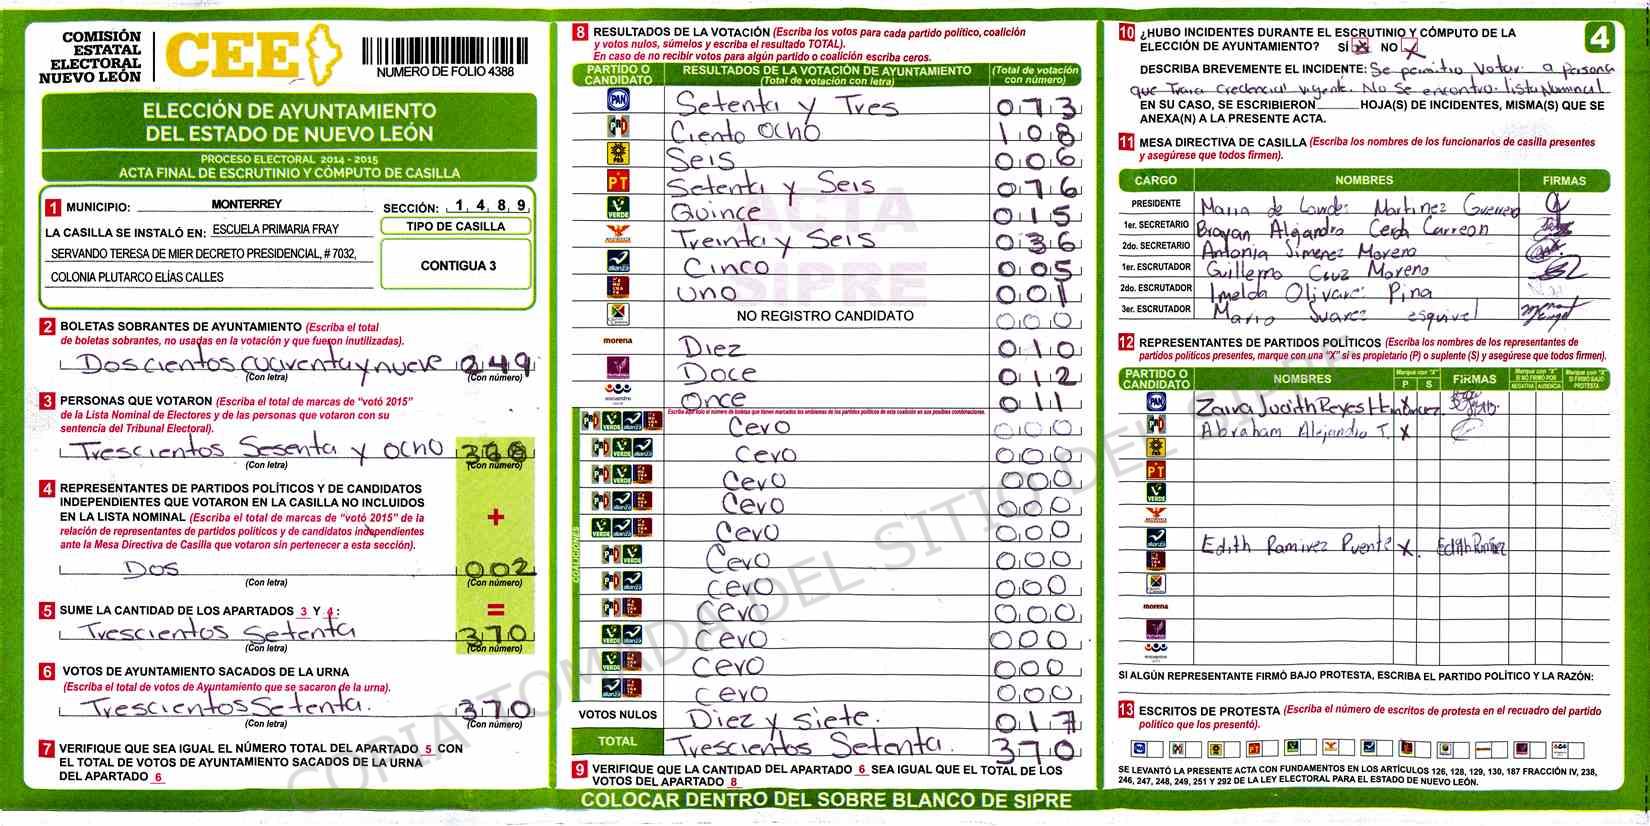 COMISIÓN
ESTATAL
ELECTORAL
NUEVO LEÓN
CEE
NUMERO DE FOLIO 4388
ELECCIÓN DE AYUNTAMIENTO
DEL ESTADO DE NUEVO LEÓN
PROCESO ELECTORAL 2014 - 2015
ACTA FINAL DE ESCRUTINIO Y CÓMPUTO DE CASILLA
1 MUNICIPIO: MONTERREY SECCIÓN: 1 4 8 9
LA CASILLA SE INSTALÓ EN: ESCUELA PRIMARIA FRAY
SERVANDO TERESA DE MIER DECRETO PRESIDENCIAL, # 7032,
COLONIA PLUTARCO ELÍAS CALLES
TIPO DE CASILLA
CONTIGUA 3
2 BOLETAS SOBRANTES DE AYUNTAMIENTO (Escriba el total
de boletas sobrantes, no usadas en la votación y que fueron inutilizadas).
Doscientos cuarenta y nueve 249
(Con letra) (Con número)
3 PERSONAS QUE VOTARON (Escriba el total de marcas de "votó 2015"
de la Lista Nominal de Electores y de las personas que votaron con su
sentencia del Tribunal Electoral).
Trescientos Sesenta y ocho 368
(Con letra) (Con número)
4 REPRESENTANTES DE PARTIDOS POLÍTICOS Y DE CANDIDATOS
INDEPENDIENTES QUE VOTARON EN LA CASILLA NO INCLUIDOS
EN LA LISTA NOMINAL (Escriba el total de marcas de "votó 2015" de la
relación de representantes de partidos políticos y de candidatos independientes
ante la Mesa Directiva de Casilla que votaron sin pertenecer a esta sección).
+
Dos 002
(Con letra) (Con número)
5 SUME LA CANTIDAD DE LOS APARTADOS 3 Y 4: =
Trescientos Setenta 370
(Con letra) (Con número)
6 VOTOS DE AYUNTAMIENTO SACADOS DE LA URNA
(Escriba el total de votos de Ayuntamiento que se sacaron de la urna).
Trescientos Setenta. 370
(Con letra) (Con número)
7 VERIFIQUE QUE SEA IGUAL EL NÚMERO TOTAL DEL APARTADO 5 CON
EL TOTAL DE VOTOS DE AYUNTAMIENTO SACADOS DE LA URNA
DEL APARTADO 6
8 RESULTADOS DE LA VOTACIÓN (Escriba los votos para cada partido político, coalición
y votos nulos, súmelos y escriba el resultado TOTAL).
En caso de no recibir votos para algún partido o coalición escriba ceros.
PARTIDO O CANDIDATO RESULTADOS DE LA VOTACIÓN DE AYUNTAMIENTO (Total de votación con letra) (Total de votación con número)
PAN Setenta y Tres 073
PRD Ciento ocho 108
Seis 006
PT Setenta y Seis 076
VERDE Quince 015
Treinta y Seis 036
alianza Cinco 005
uno 001
NO REGISTRO CANDIDATO 000
morena Diez 010
Doce 012
encuentro Once 011
Escriba aquí sólo el número de boletas que tienen marcados los emblemas de los partidos políticos de esta coalición en sus posibles combinaciones.
COALICIONES
Cero 000
Cero 000
Cero 000
Cero 000
Cero 000
Cero 000
cero 000
Cero 000
Cero 000
Cero 000
cero 000
VOTOS NULOS Diez y siete. 017
TOTAL Trescientos Setenta. 370
9 VERIFIQUE QUE LA CANTIDAD DEL APARTADO 6 SEA IGUAL QUE EL TOTAL DE LOS
VOTOS DEL APARTADO 8
COLOCAR DENTRO DEL SOBRE BLANCO DE SIPRE
ACTA
SIPRE
COPIA TOMADA DEL SITIO DEL SIPRE
4
10 ¿HUBO INCIDENTES DURANTE EL ESCRUTINIO Y CÓMPUTO DE LA
ELECCIÓN DE AYUNTAMIENTO? SÍ X NO X
DESCRIBA BREVEMENTE EL INCIDENTE: Se permitio Votar a persona
que Traia Credencial vigente. No Se encontro lista Nominal
EN SU CASO, SE ESCRIBIERON HOJA(S) DE INCIDENTES, MISMA(S) QUE SE
ANEXA(N) A LA PRESENTE ACTA.
11 MESA DIRECTIVA DE CASILLA (Escriba los nombres de los funcionarios de casilla presentes
y asegúrese que todos firmen).
CARGO NOMBRES FIRMAS
PRESIDENTE Maria de Lourdes Martinez Guerrero
1er. SECRETARIO Brayan Alejandro Cerda Carreon
2do. SECRETARIO Antonia Jimenez Moreno
1er. ESCRUTADOR Guillermo Cruz Moreno
2do. ESCRUTADOR Imelda Olivares Pina
3er. ESCRUTADOR Mario Juarez esquivel
12 REPRESENTANTES DE PARTIDOS POLÍTICOS (Escriba los nombres de los representantes de
partidos políticos presentes, marque con una "X" si es propietario (P) o suplente (S) y asegúrese que todos firmen).
PARTIDO O CANDIDATO NOMBRES Marque con "X" P. S FIRMAS Marque con "X" SI NO FIRMÓ POR NEGATIVA AUSENCIA Marque con "X" SI FIRMÓ BAJO PROTESTA
PAN Zaira Judith Reyes Hernandez X
PRD Abraham Alejandro T. X
PT
VERDE
alianza Edith Ramirez Puente X Edith Ramirez
morena
SI ALGÚN REPRESENTANTE FIRMÓ BAJO PROTESTA, ESCRIBA EL PARTIDO POLÍTICO Y LA RAZÓN:
13 ESCRITOS DE PROTESTA (Escriba el número de escritos de protesta en el recuadro del partido
político que los presentó).
SE LEVANTÓ LA PRESENTE ACTA CON FUNDAMENTOS EN LOS ARTÍCULOS 126, 128, 129, 130, 187 FRACCIÓN IV, 238,
246, 247, 248, 249, 251 Y 292 DE LA LEY ELECTORAL PARA EL ESTADO DE NUEVO LEÓN.